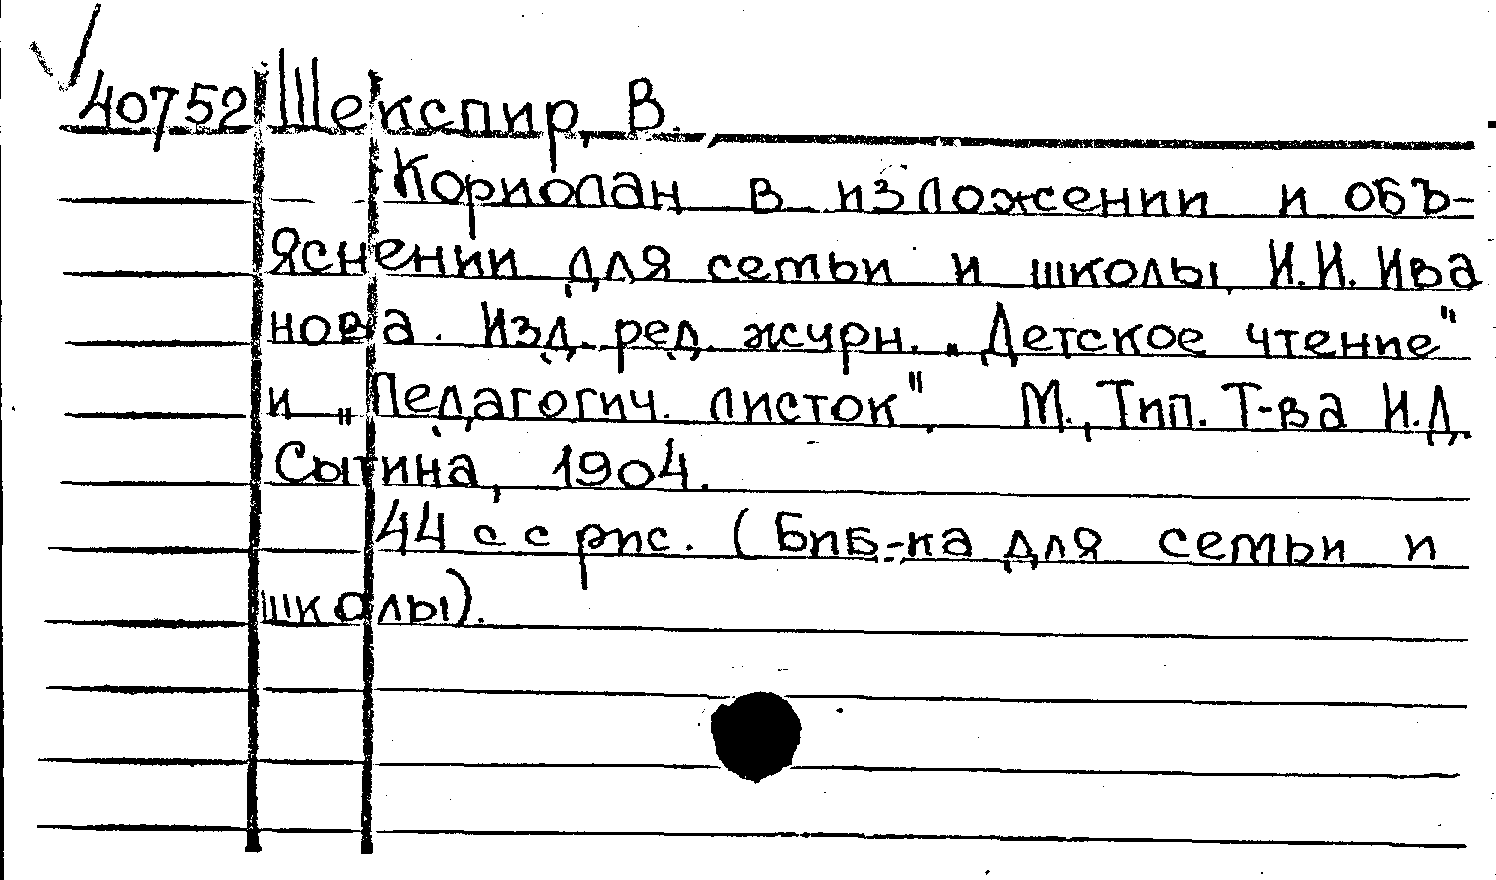 40752 Шекспир, В.
Кориолан в изложении и объ-
яснении для семьи и школы И.И. Ива
нова. Изд. ред. журн. „Детское чтение"
и „Педагогич. листок". М., Тип. Т-ва И.Д.
Сытина, 1904.
44 с с рис. (Биб-ка для семьи и
школы).